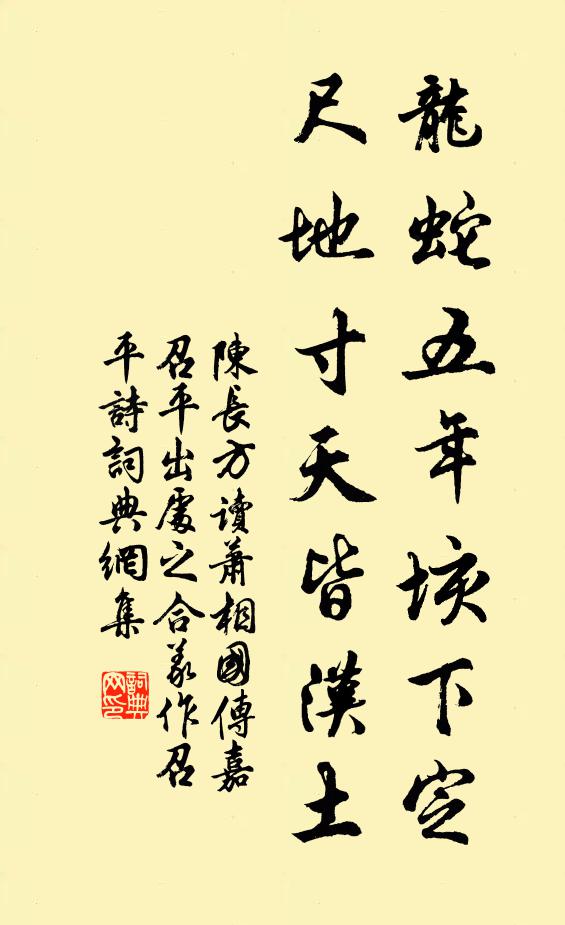 龍蛇五年垓下定
尺地寸天皆漢土
陳長方讀蕭相國傳嘉
召平出處之合義作召
平詩詞典網集
詞典
网印